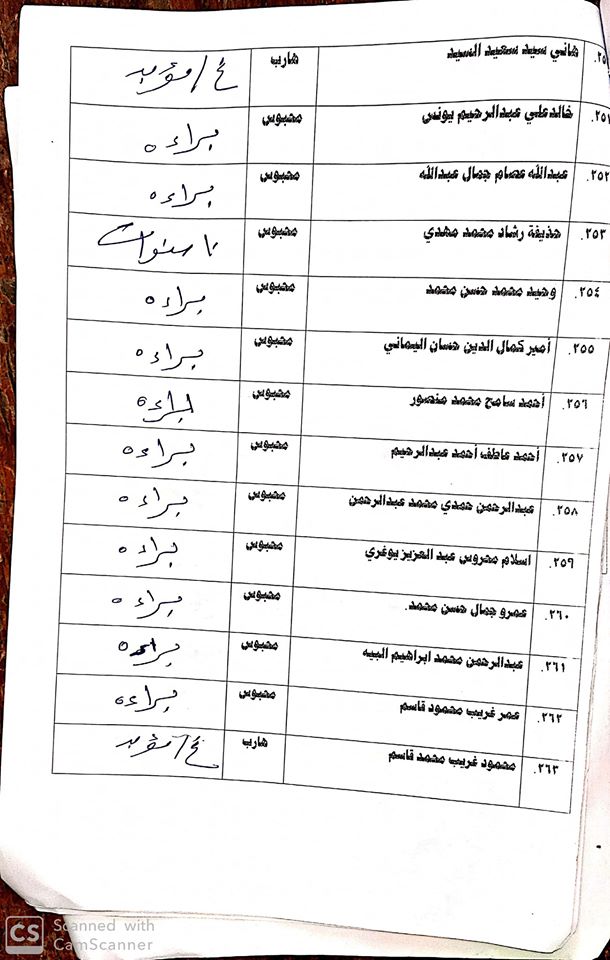 ٢٥. هاني سيد سعيد السيد هارب غ/مؤبد
٢٥١. خالد علي عبدالرحيم يونس محبوس براءه
٢٥٢. عبدالله عصام جمال عبدالله محبوس براءه
٢٥٣. حذيفة رشاد محمد مهدي محبوس سنوات
٢٥٤. وحيد محمد حسن محمد محبوس براءه
٢٥٥. أمير كمال الدين حسان اليماني محبوس براءه
٢٥٦. أحمد سامح محمد منصور محبوس براءه
٢٥٧. أحمد عاطف أحمد عبدالرحيم محبوس براءه
٢٥٨. عبدالرحمن حمدي محمد عبدالرحمن محبوس براءه
٢٥٩. اسلام محروس عبد العزيز بوغري محبوس براءه
٢٦٠. عمرو جمال حسن محمد. محبوس براءه
٢٦١. عبدالرحمن محمد ابراهيم البيه محبوس براءه
٢٦٢. عمر غريب محمود قاسم محبوس براءه
٢٦٣. محمود غريب محمد قاسم هارب غ/مؤبد
CS Scanned with
CamScanner